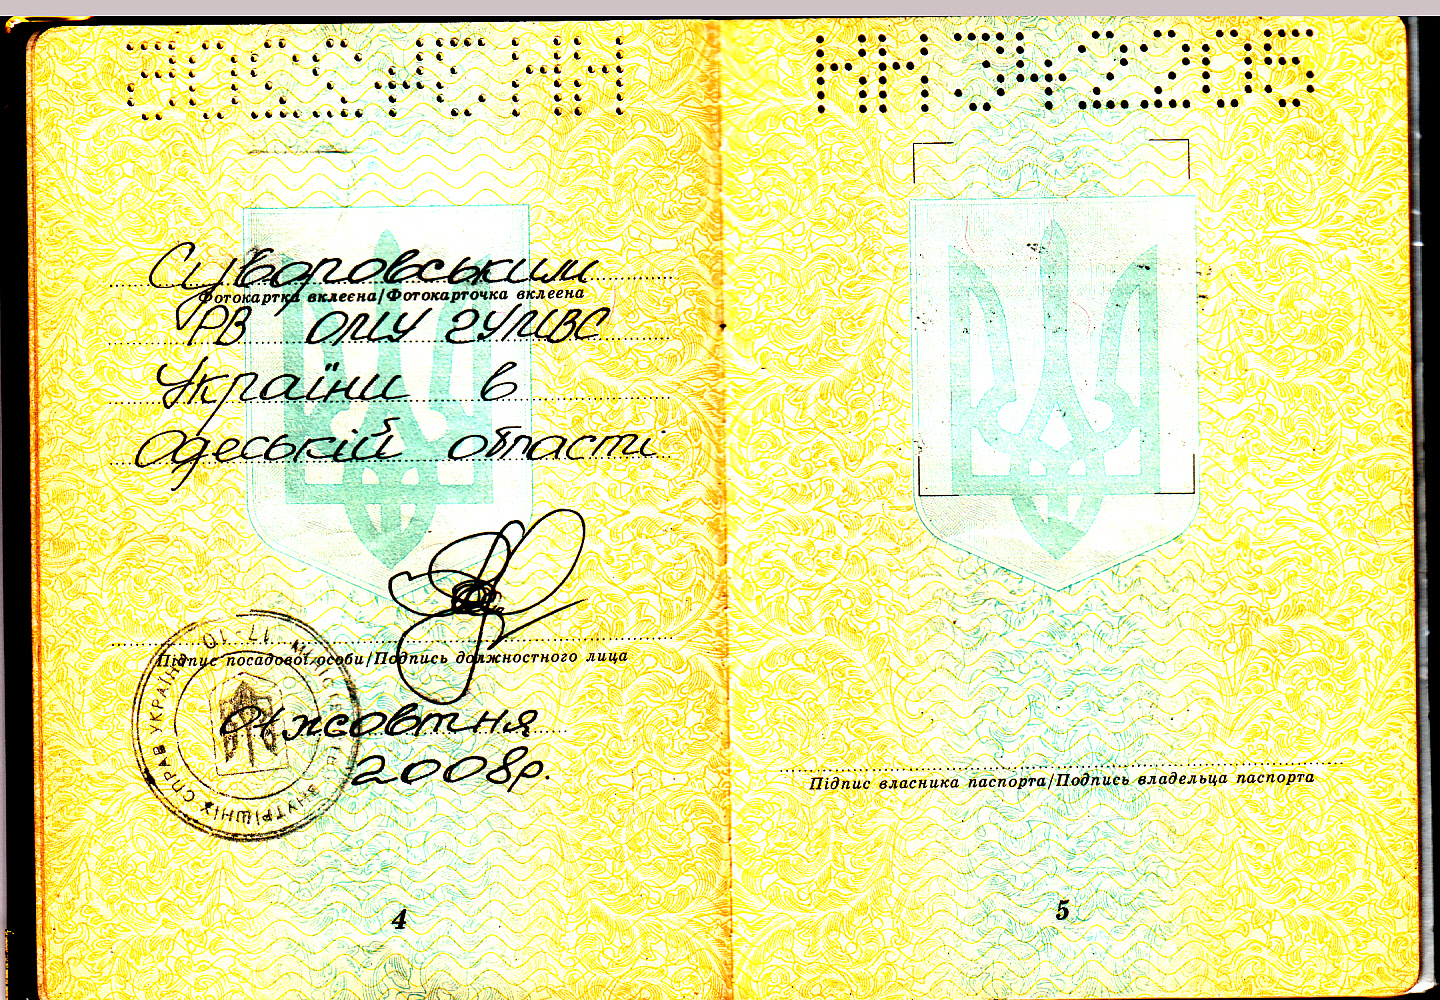 КМ 342205
Суворовським
Фотокартка вклеєна/Фотокарточка вклеена
РВ ОМУ ГУМВС
України в
Одеській області
Підпис посадової особи/Подпись должностного лица
МІНІСТЕРСТВО ВНУТРІШНІХ СПРАВ УКРАЇНИ
01 жовтня
2008р.
4
Підпис власника паспорта/Подпись владельца паспорта
5